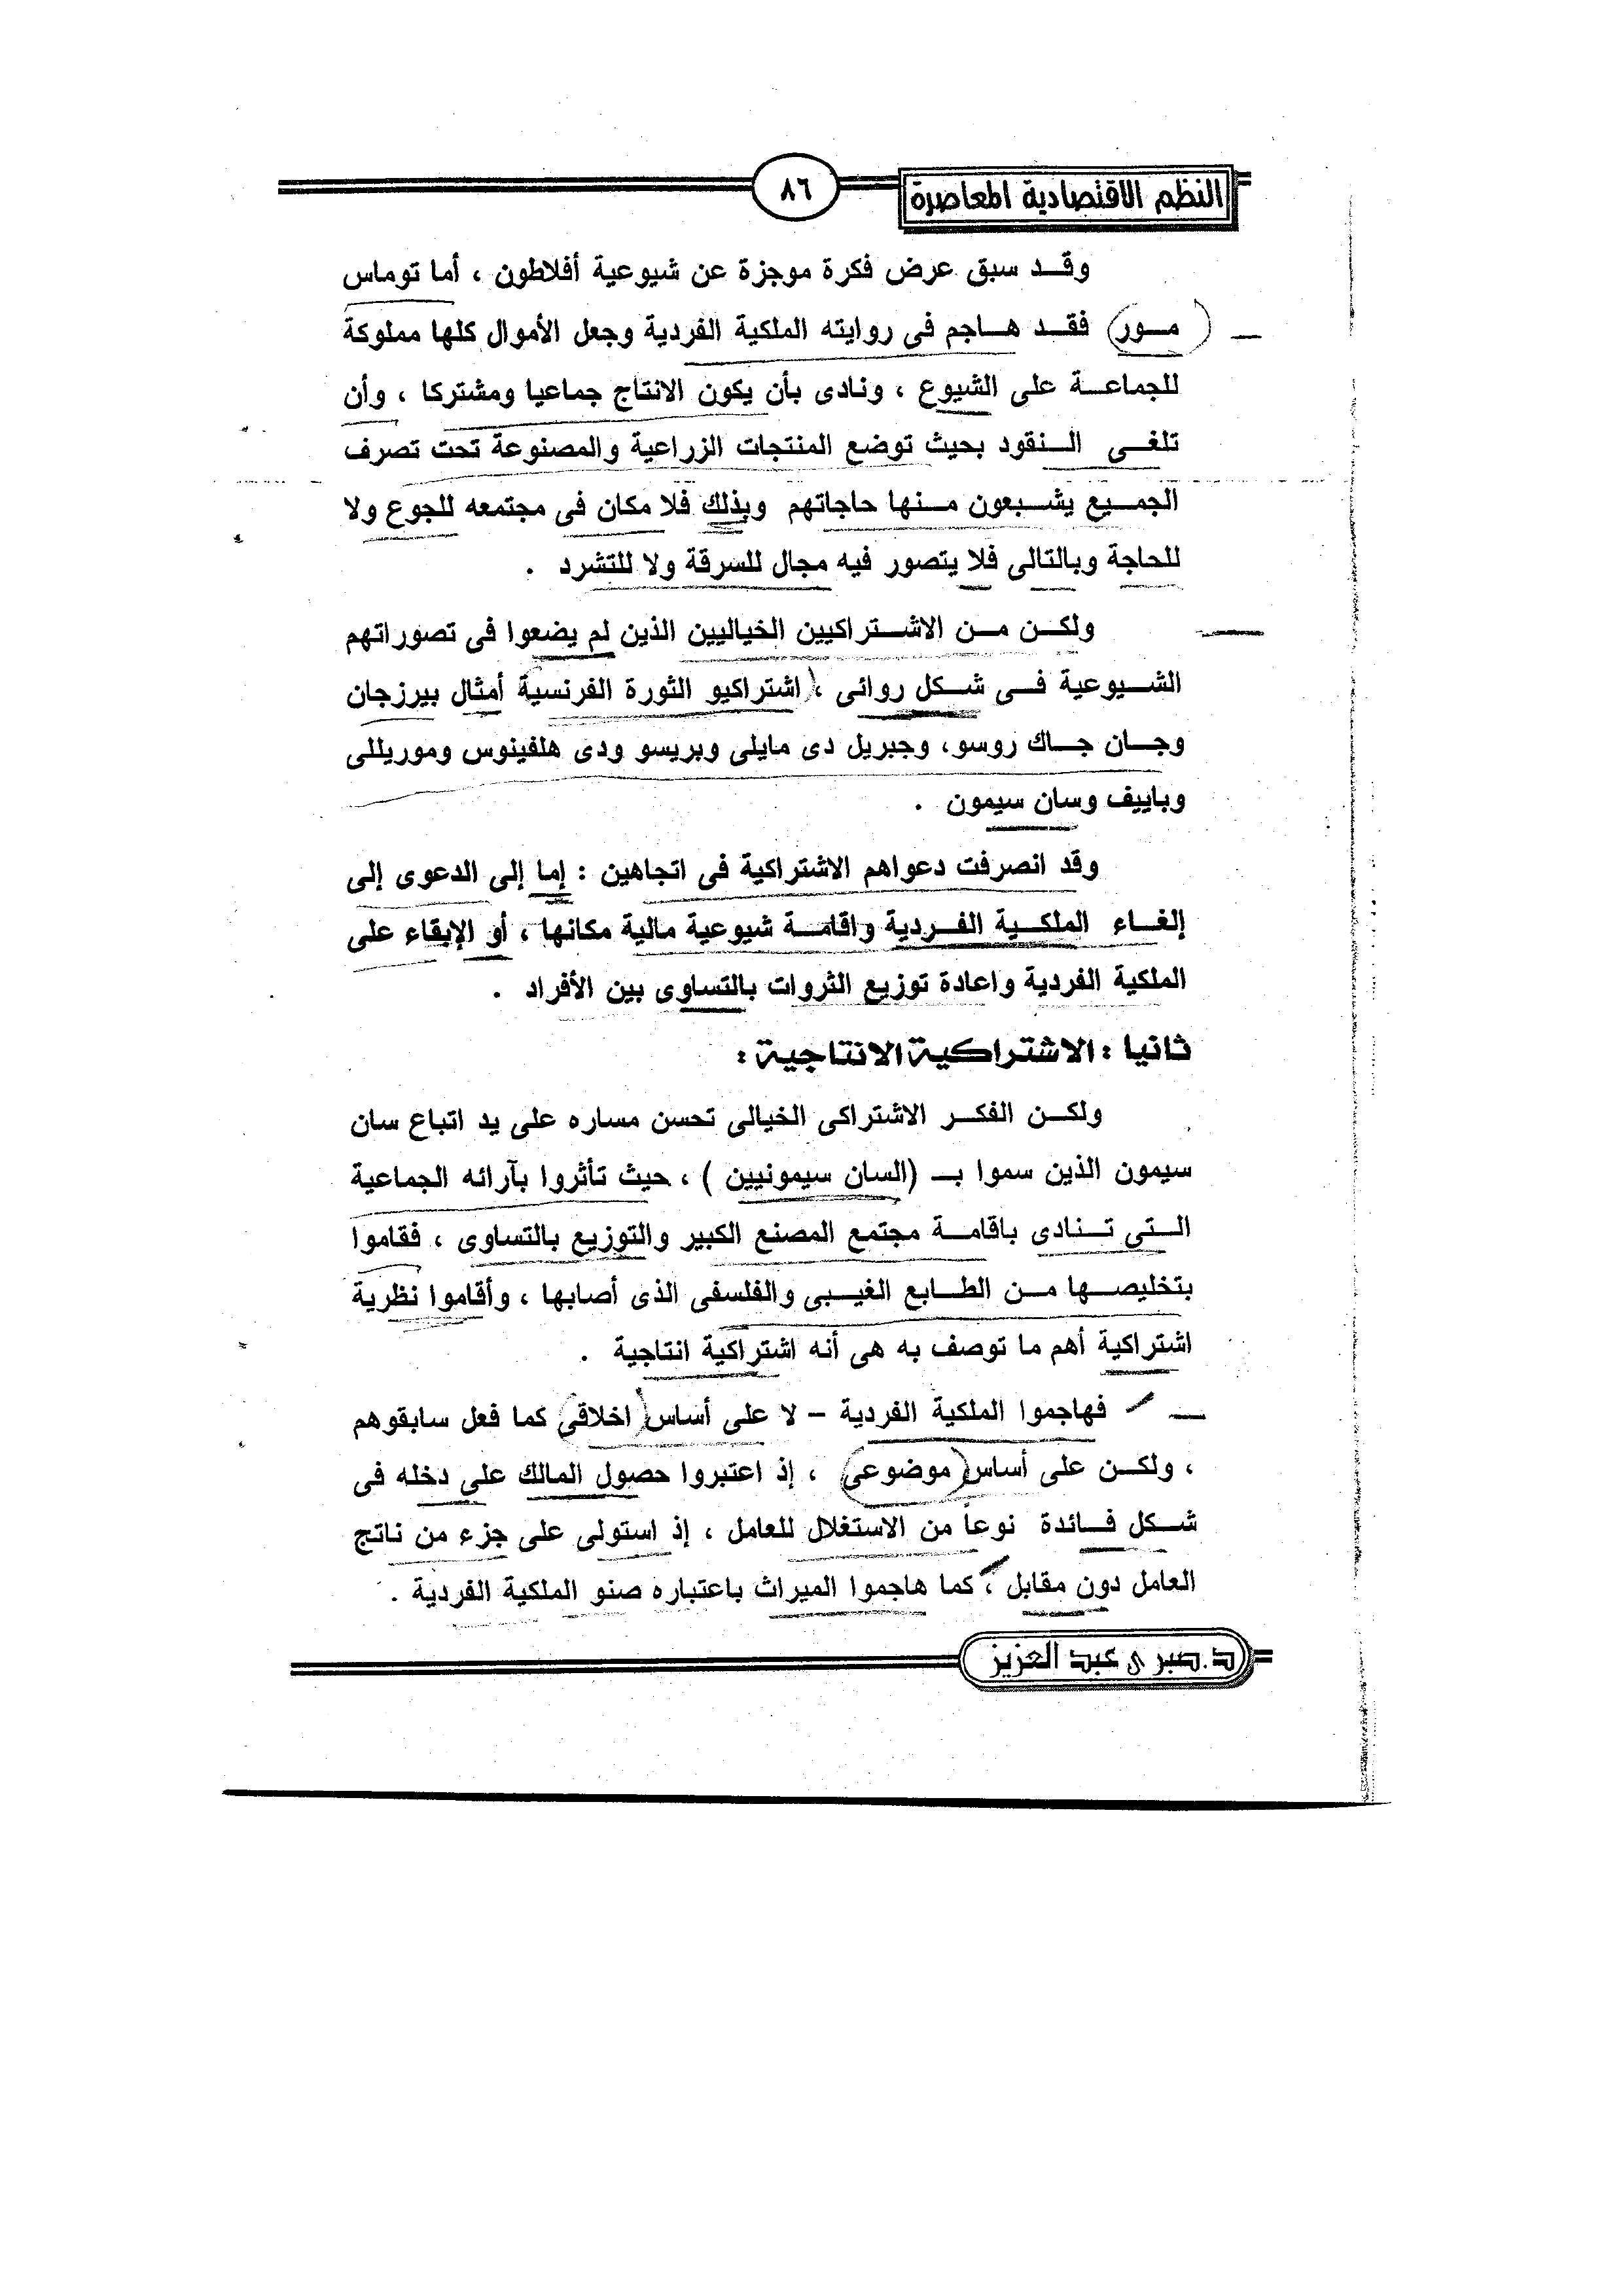 النظم الاقتصادية المعاصرة
٨٦
وقد سبق عرض فكرة موجزة عن شيوعية أفلاطون ، أما توماس
مور فقد هاجم فى روايته الملكية الفردية وجعل الأموال كلها مملوكة
للجماعة على الشيوع ، ونادى بأن يكون الانتاج جماعيا ومشتركا ، وأن
تلغى النقود بحيث توضع المنتجات الزراعية والمصنوعة تحت تصرف
الجميع يشبعون منها حاجاتهم وبذلك فلا مكان فى مجتمعه للجوع ولا
للحاجة وبالتالى فلا يتصور فيه مجال للسرقة ولا للتشرد .
ولكن من الاشتراكيين الخياليين الذين لم يضعوا فى تصوراتهم
الشيوعية فى شكل روائى ، اشتراكيو الثورة الفرنسية أمثال بيرزجان
وجان جاك روسو، وجبريل دى مايلى وبريسو ودى هلفينوس وموريللى
وباييف وسان سيمون .
وقد انصرفت دعواهم الاشتراكية فى اتجاهين : إما إلى الدعوى إلى
إلغاء الملكية الفردية واقامة شيوعية مالية مكانها ، أو الإبقاء على
الملكية الفردية واعادة توزيع الثروات بالتساوى بين الأفراد .
ثانيا : الاشتراكية الانتاجية :
ولكن الفكر الاشتراكى الخيالى تحسن مساره على يد اتباع سان
سيمون الذين سموا بـ (السان سيمونيين ) ، حيث تأثروا بآرائه الجماعية
التى تنادى باقامة مجتمع المصنع الكبير والتوزيع بالتساوى ، فقاموا
بتخليصها من الطابع الغيبى والفلسفى الذى أصابها ، وأقاموا نظرية
اشتراكية أهم ما توصف به هى أنه اشتراكية انتاجية .
فهاجموا الملكية الفردية – لا على أساس اخلاقى كما فعل سابقوهم
، ولكن على أساس موضوعى ، إذ اعتبروا حصول المالك على دخله فى
شكل فائدة نوعاً من الاستغلال للعامل ، إذ استولى على جزء من ناتج
العامل دون مقابل ، كما هاجموا الميراث باعتباره صنو الملكية الفردية .
د.صبرى عبد العزيز